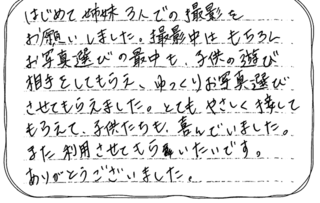 はじめて姉妹3人での撮影を
お願いしました。撮影中はもちろん
お写真選びの最中も、子供の遊び
相手をしてもらえ、ゆっくりお写真選び
させてもらえました。とてもやさしく接して
もらえて、子供たちも、喜んでいました。
また利用させてもらいたいです。
ありがとうございました。